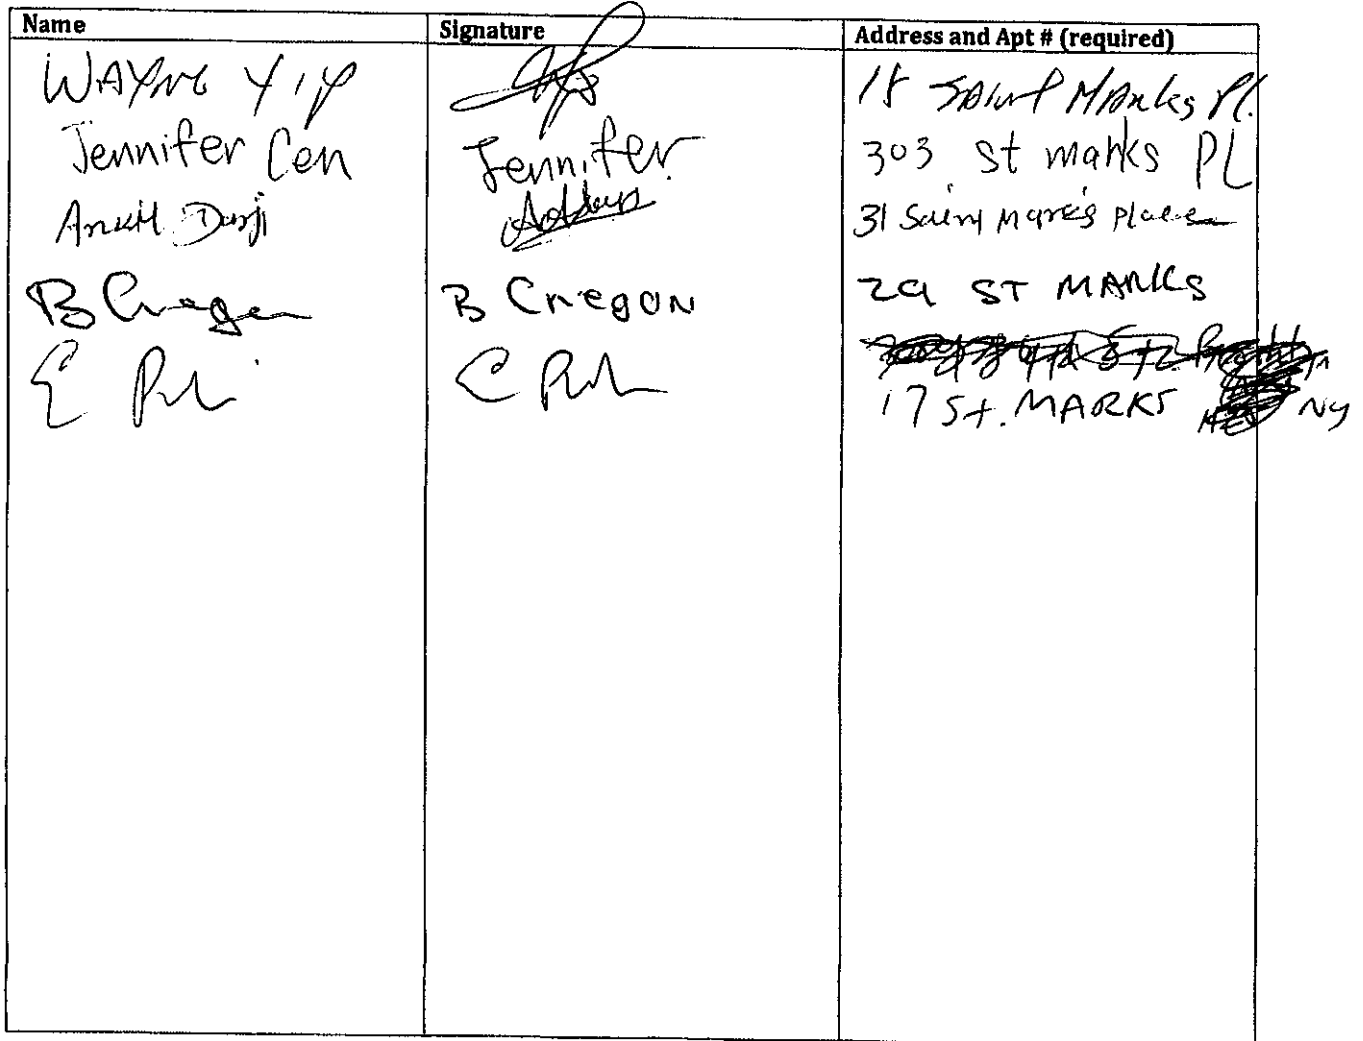 Name Signature Address and Apt # (required)
WAYNE YIP 18 SAINT MARKS Pl.
Jennifer Cen Jennifer 303 St marks PL
Ankit Darji 31 Saint Mark's Place
B Cregon B CregoN 29 ST MARKS
E C
17 St. MARKS NY